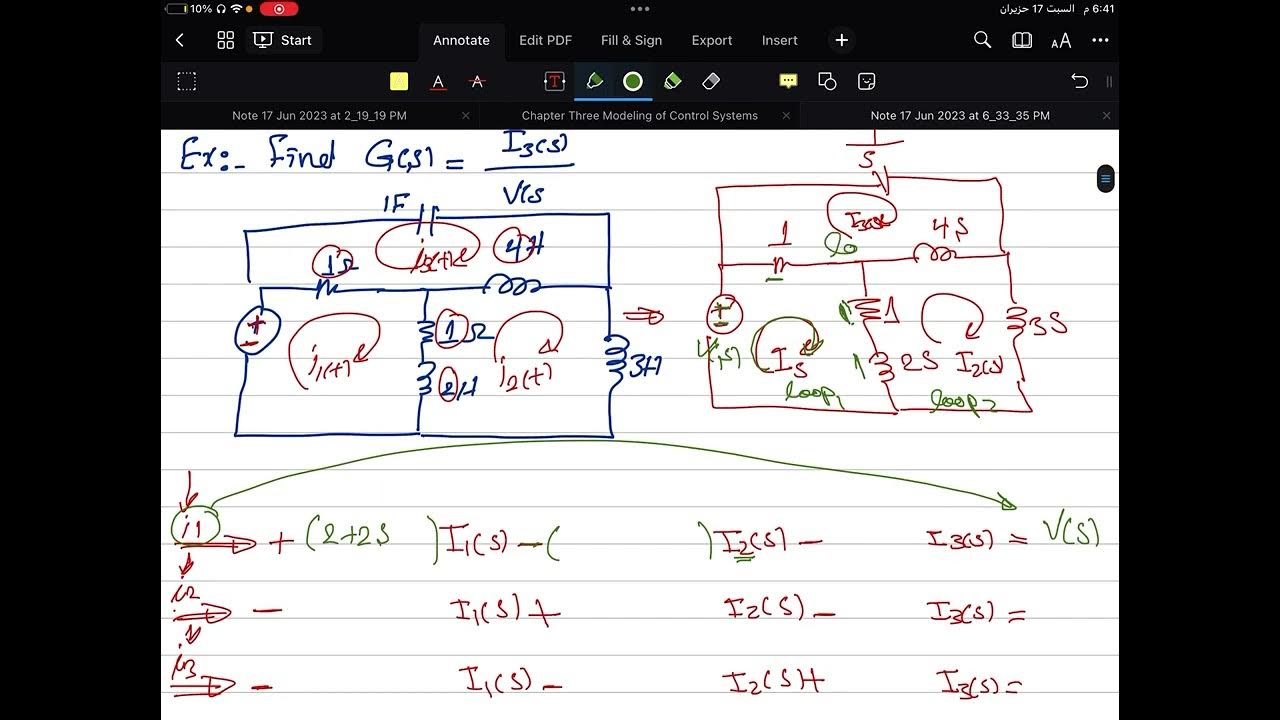 10%
6:41 م السبت 17 حزيران
Start
Annotate Edit PDF Fill & Sign Export Insert
Note 17 Jun 2023 at 2_19_19 PM
Chapter Three Modeling of Control Systems
Note 17 Jun 2023 at 6_33_35 PM
Ex:- Find G(s) = I3(s)
V(s
1F
1Ω
4H
i1(t)
1Ω
2H
i2(t)
3H
S
I3(s)
1
lo
4S
V(s)
Is
loop1
1
2S
I2(s)
loop2
3S
i1 + (2+2S )I1(s) - ( )I2(s) - I3(s) = V(S)
i2 - I1(s) + I2(s) - I3(s) =
i3 - I1(s) - I2(s) + I3(s) =